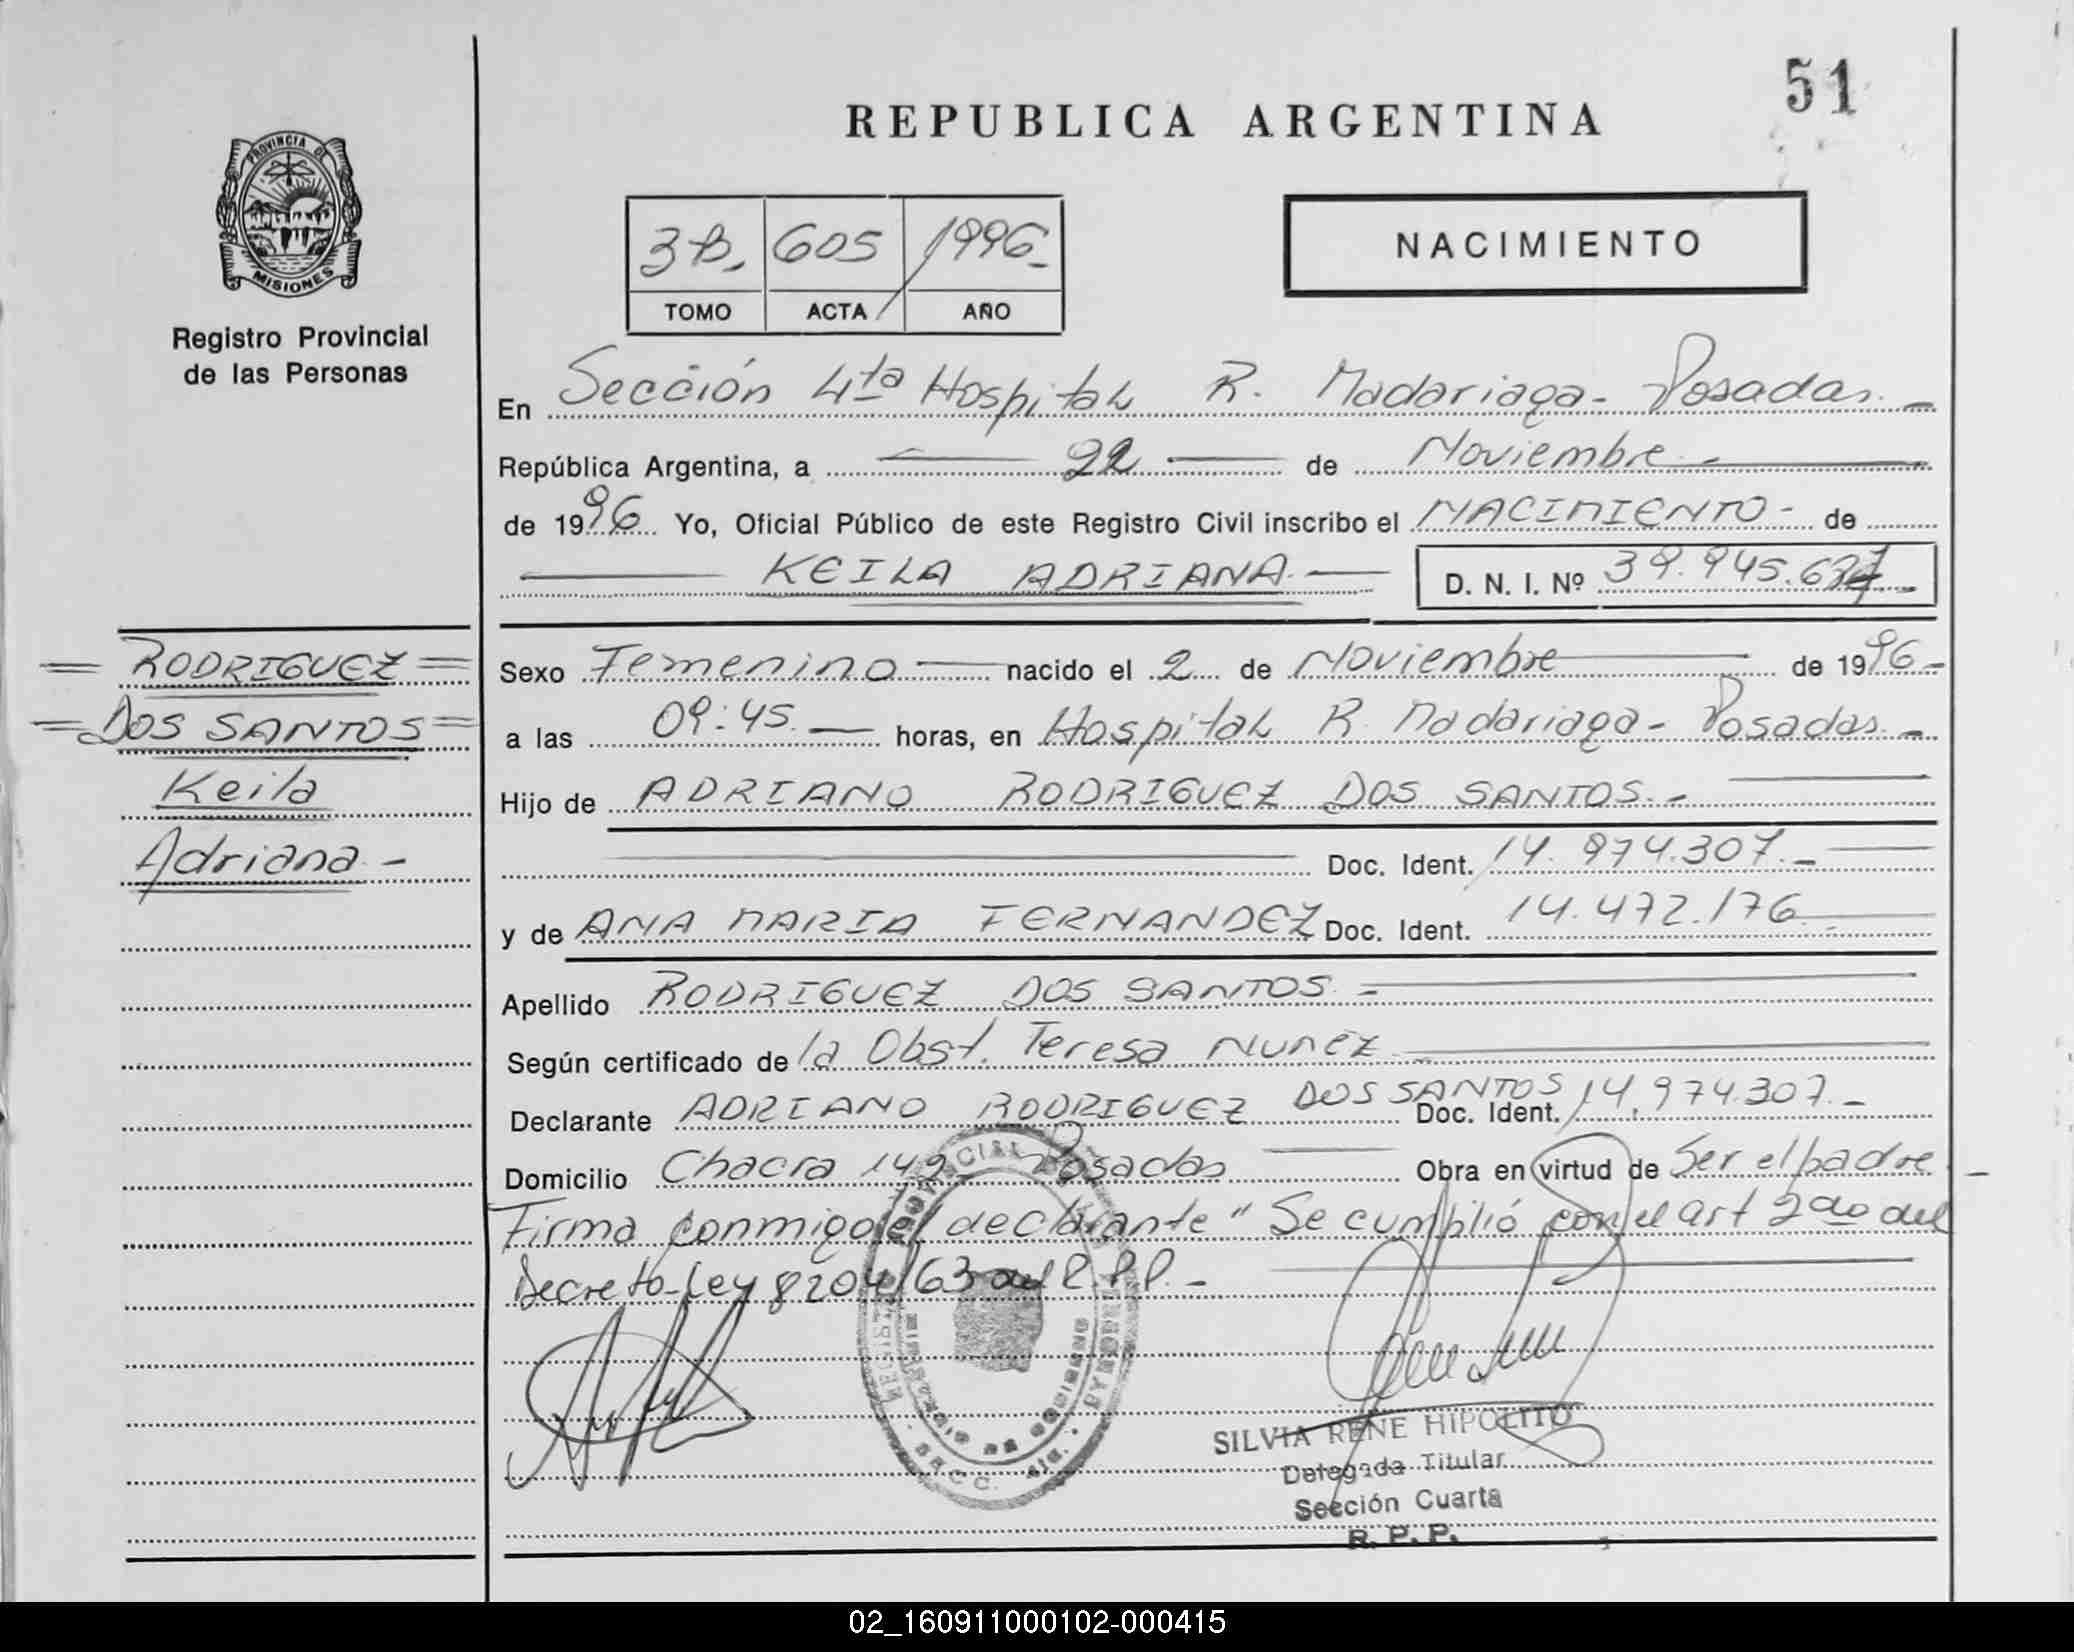 51
REPUBLICA ARGENTINA
PROVINCIA DE
MISIONES
Registro Provincial
de las Personas
3B. 605 1996
TOMO ACTA AÑO
NACIMIENTO
En Sección 4ta Hospital R. Madariaga - Posadas. -
República Argentina, a 22 de Noviembre -
de 1996 Yo, Oficial Público de este Registro Civil inscribo el NACIMIENTO - de
KEILA ADRIANA. D. N. I. Nº
RODRIGUEZ
DOS SANTOS
Keila
Adriana -
Sexo Femenino nacido el 2 de Noviembre de 1996 -
a las 09:45 horas, en Hospital R. Madariaga - Posadas. -
Hijo de ADRIANO RODRIGUEZ DOS SANTOS. -
Doc. Ident. 14.974.307. -
y de ANA MARIA FERNANDEZ Doc. Ident. 14.472.176
Apellido RODRIGUEZ DOS SANTOS. -
Según certificado de la Obst. Teresa Nuñez
Declarante ADRIANO RODRIGUEZ DOS SANTOS Doc. Ident. 14.974.307. -
Domicilio Chacra 149 Posadas Obra en virtud de Ser el padre -
Firma conmigo el declarante " Se cumplió con el art 2do del
Decreto-Ley 8204/63 del R.P.P. -
SILVIA RENE HIPOLITO
Delegada Titular
Sección Cuarta
R. P. P.
02_160911000102-000415